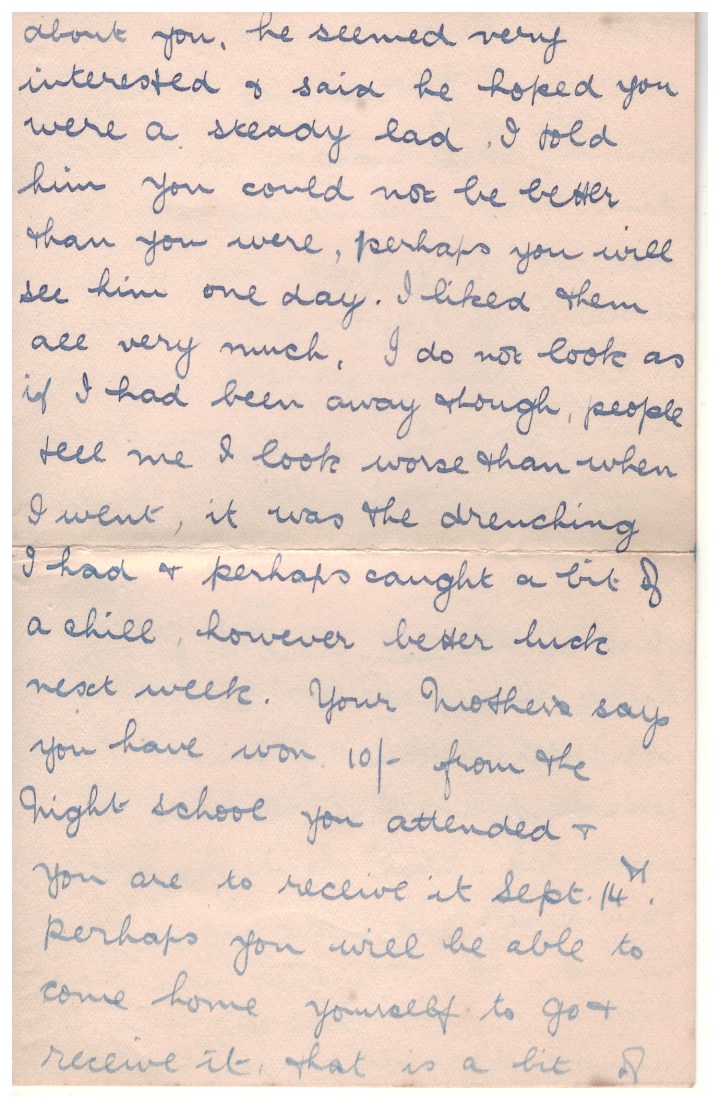 about you, he seemed very
interested & said he hoped you
were a steady lad, I told
him you could not be better
than you were, perhaps you will
see him one day. I liked them
all very much, I do not look as
if I had been away though, people
tell me I look worse than when
I went, it was the drenching
I had & perhaps caught a bit of
a chill, however better luck
next week. Your Mother says
you have won 10/- from the
Night school you attended &
you are to receive it Sept. 14th.
perhaps you will be able to
come home yourself to go &
receive it, that is a bit of